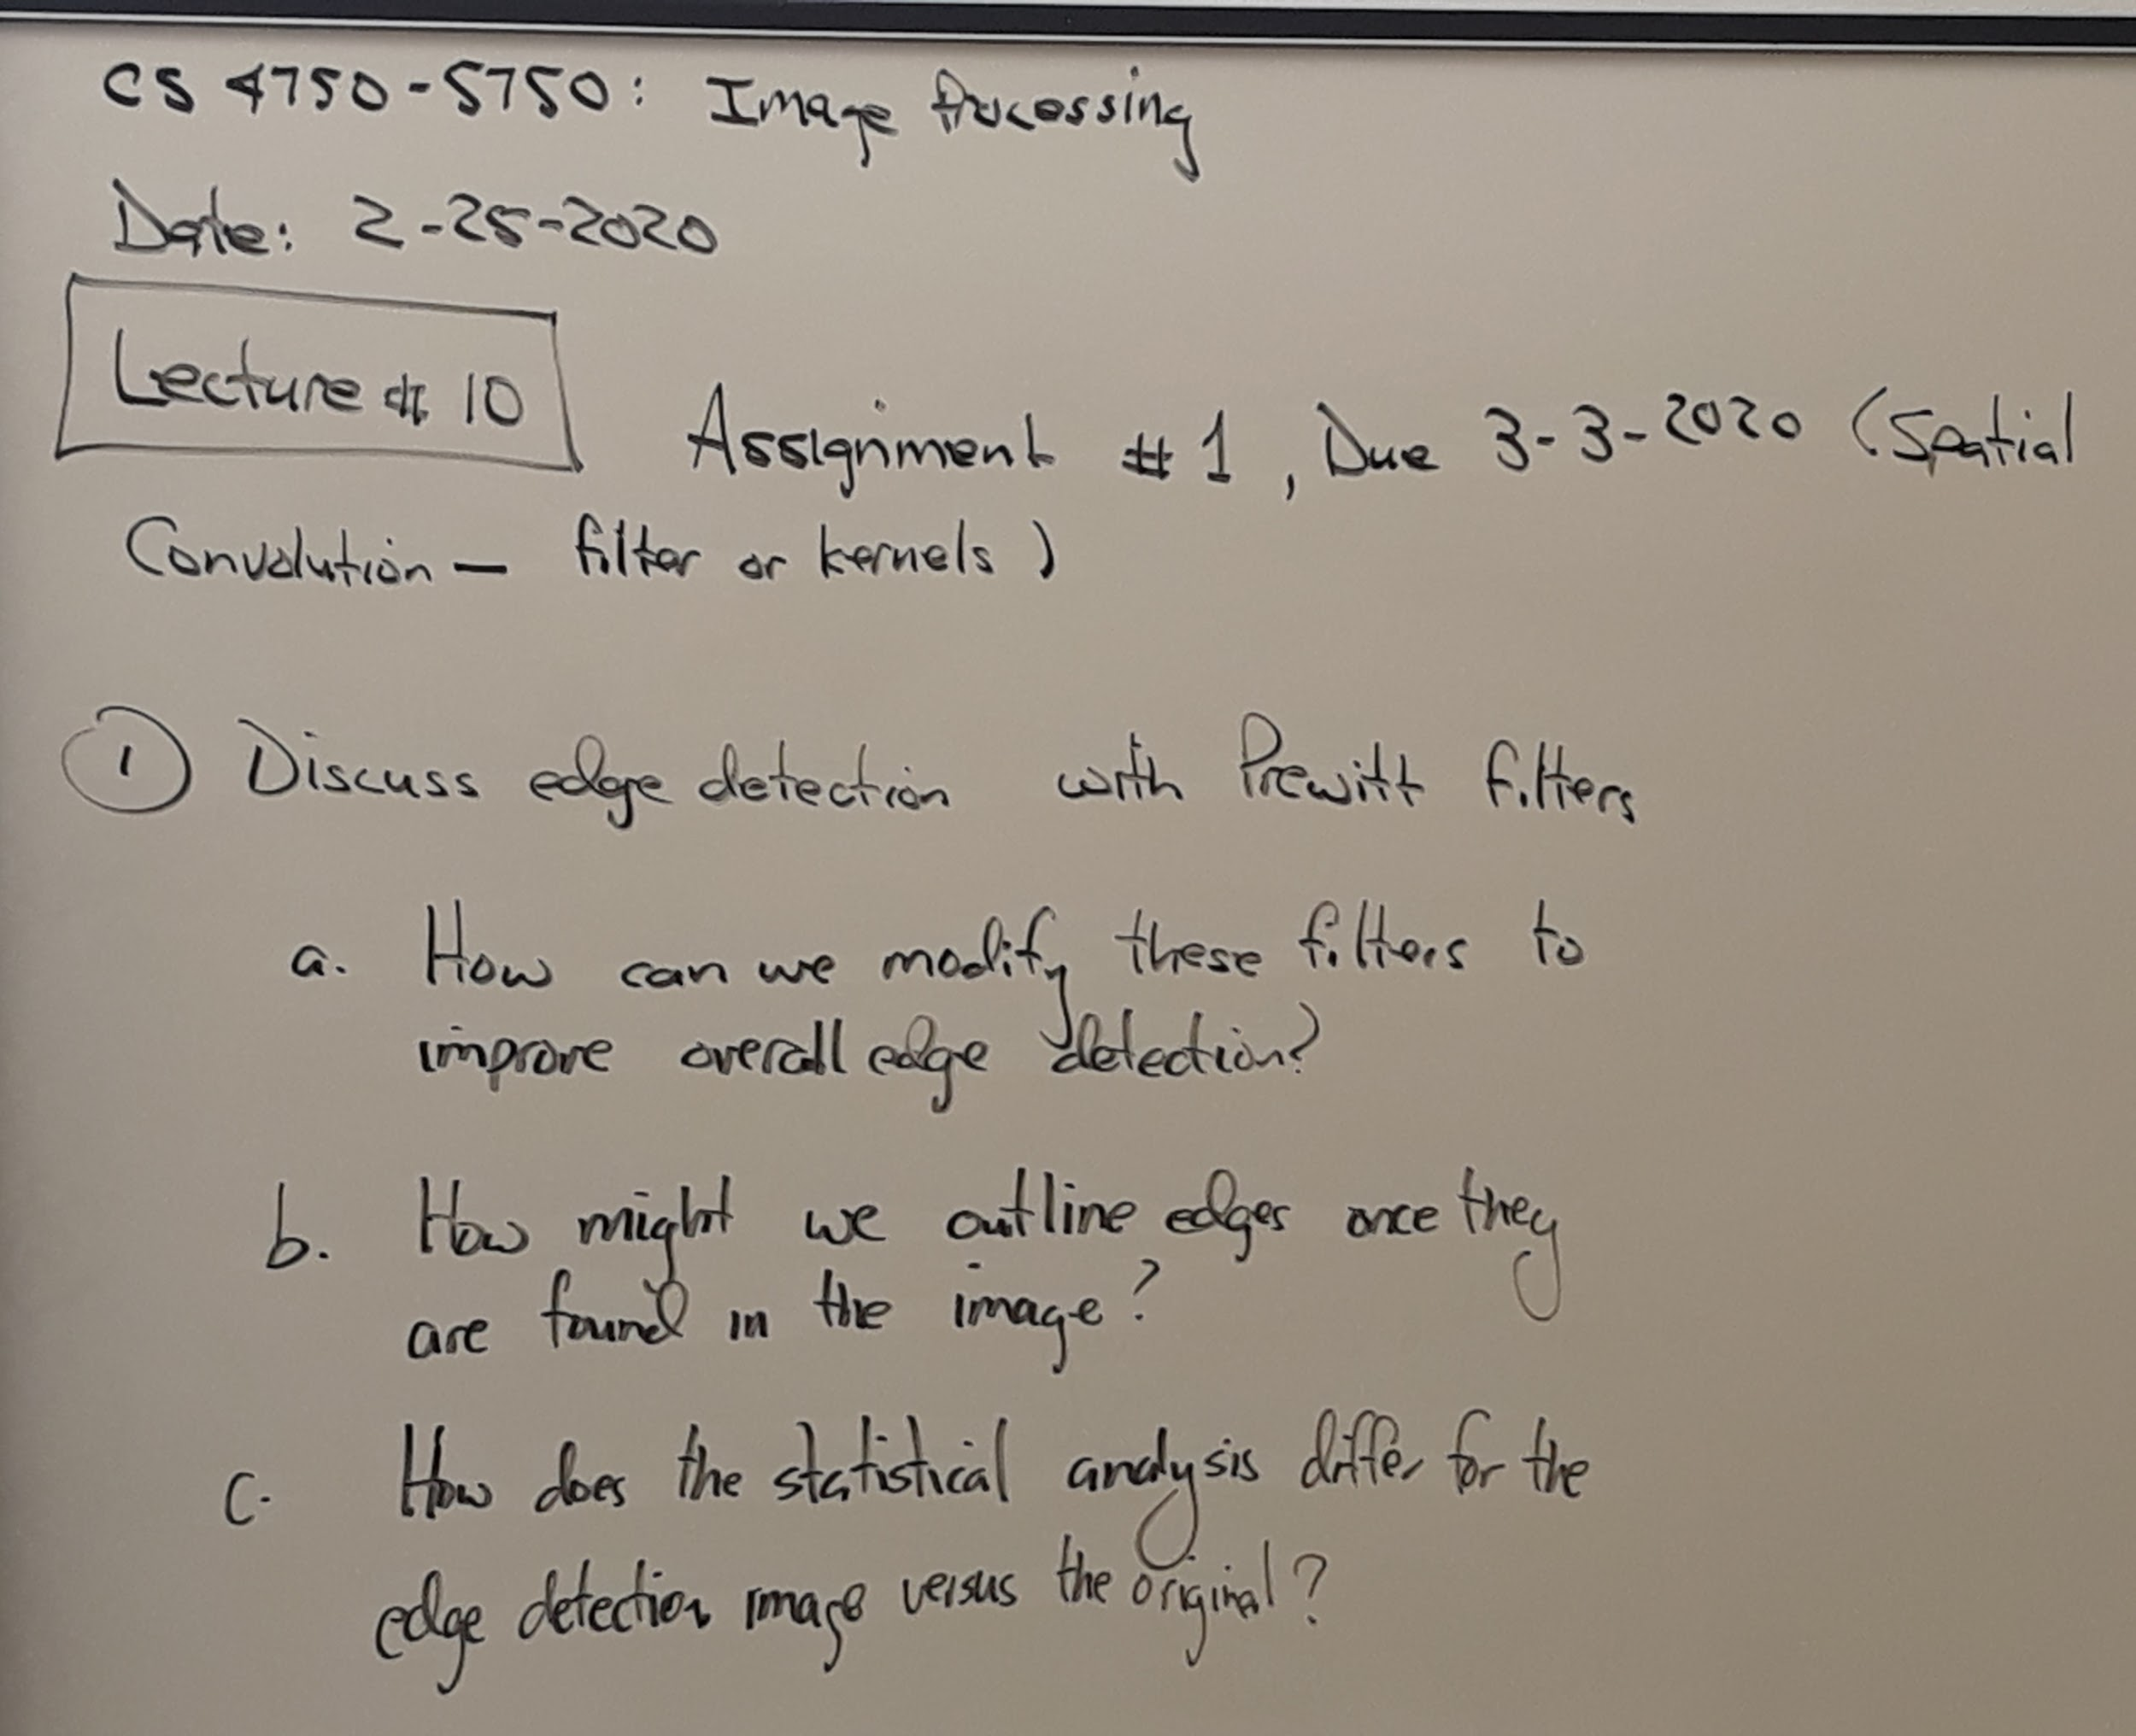 CS 4750-5750: Image Processing
Date: 2-25-2020
Lecture # 10
Assignment #1, Due 3-3-2020 (Spatial
Convolution — filter or kernels)
1 Discuss edge detection with Prewitt filters
a. How can we modify these filters to
improve overall edge detection?
b. How might we outline edges once they
are found in the image?
c. How does the statistical analysis differ for the
edge detection image versus the original?